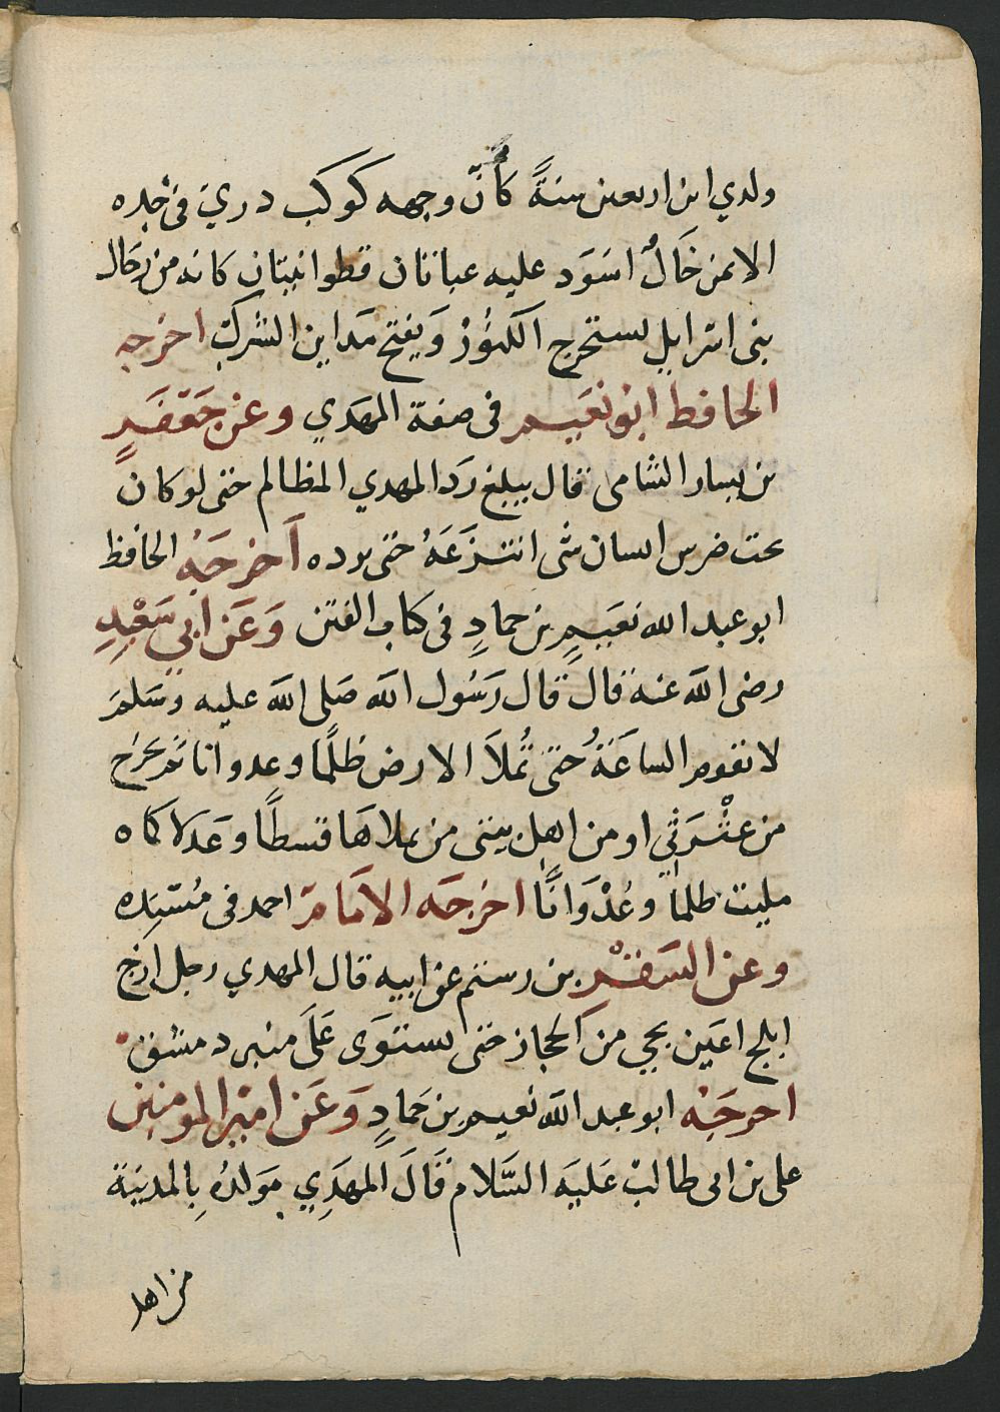 ولدي ابن اربعين سنةً كأنّ وجهه كوكب دري في خده
الايمن خَالٌ اسوَد عليه عباتان قطوانيتان كانه من رجال
بنى اسرايل يستخرج الكنُوزْ وَيفتح مَداين الشرك اخرجه
الحافظ ابو نعَيم في صفة المهَدي وعن جَعَفَرٍ
بن يسار الشامى قال يبلغ رَد المهدي المظالم حتى لو كان
تحت ضرس انسان شى انتزَعَهُ حتى يرده أخرجَهُ الحافظ
ابو عبد الله نعَيمٍ بن حمادٍ في كتاب الفتن وَعَن ابي سَعْيدٍ
رضى الله عنه قال قال رَسُول الله صَلى الله عليه وسَلم
لا تقوم الساعَةُ حتى تُملاَ الارض ظلمًا وعدوانا ثم يخرج
من عتْرَتي او من اهل بيتى من يملاهَا قسطًا وعَدلا كما
مليت ظلمًا وعُدْوَانًا اخرجَه الامَامَ احمد في مُسْنَده
وعن السَقْرِ بن رستم عن ابيه قال المهدي رجل ازج
ابلج اعَين يجي من الحجاز حتى يستوَى عَلَى منبر دمشق
اخرجَهُ ابو عبد الله نعيم بن حَمادٍ وَعَن اميْر المومنين
على بن ابى طالب عَليَه السَّلام قَالَ المهَدِي مَولدُه بِالمدينَة
من اهل